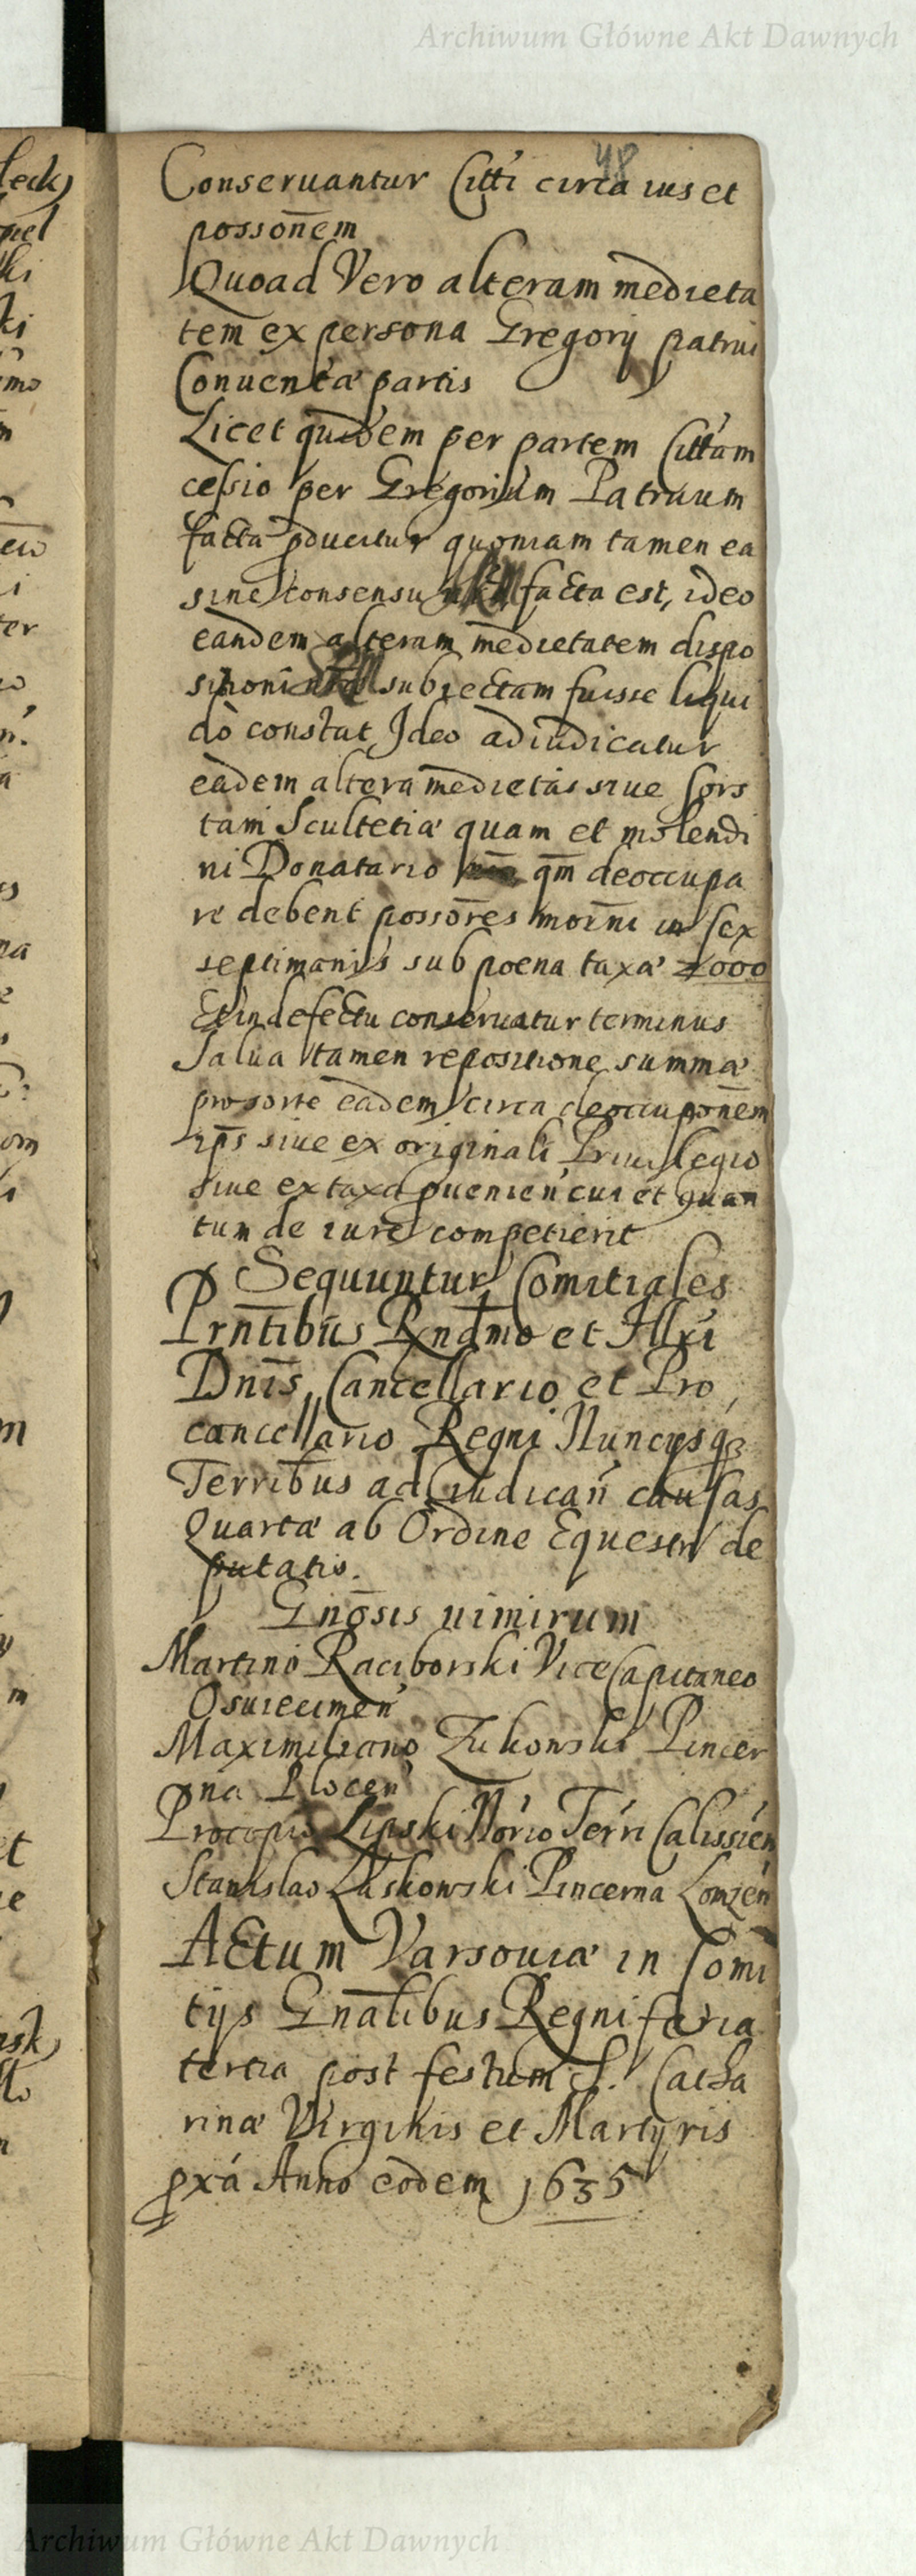 Archiwum Główne Akt Dawnych
48
Conseruantur Citti circa ius et
posson̄em
Quoad Vero alteram medieta
tem ex persona Gregorij patrui
Conuentæ partis
Licet quidem per partem Cittam
cessio per Gregorium Patruum
facta pducitur quoniam tamen ea
sine consensu facta est, ideo
eandem alteram medietatem dispo
subiectam fuisse liqui
dò constat Ideo adiudicatur
eadem altera medietas siue sors
tam Scultetiæ quam et molendi
ni Donatario qm̄ deoccupa
re debent possōres mōrni in sex
septimanis sub poena taxæ 2000
Et in defectu conseruatur terminus
Salua tamen repositione summæ
pro sorte eadem circa deoccupon̄em
ip̄s siue ex originali Priuilegio
siue ex taxa pueniēn cui et quan
tum de iure competierit
Sequuntur Comitiales
Prn̄tibus Rndmo et Illri
Dnīs Cancellario et Pro
cancellario Regni Nuncijsq3
Terribus ad iudicań causas
Quartæ ab Ordine Equestri de
putatis.
Gnōsis nimirum
Martino Raciborski ViceCapitaneo
Osuiecimeń
Maximiliano Zukowski Pincer
na Ploceń
Procopio Lipski Nōrio Terri Calissień
Stanislao Laskowski Pincerna Lomzeń
Actum Varsouiæ in Comi
tijs Gnālibus Regni feria
tertia post festum S. Catha
rinæ Virginis et Martyris
pxá Anno eodem 1635
Archiwum Główne Akt Dawnych